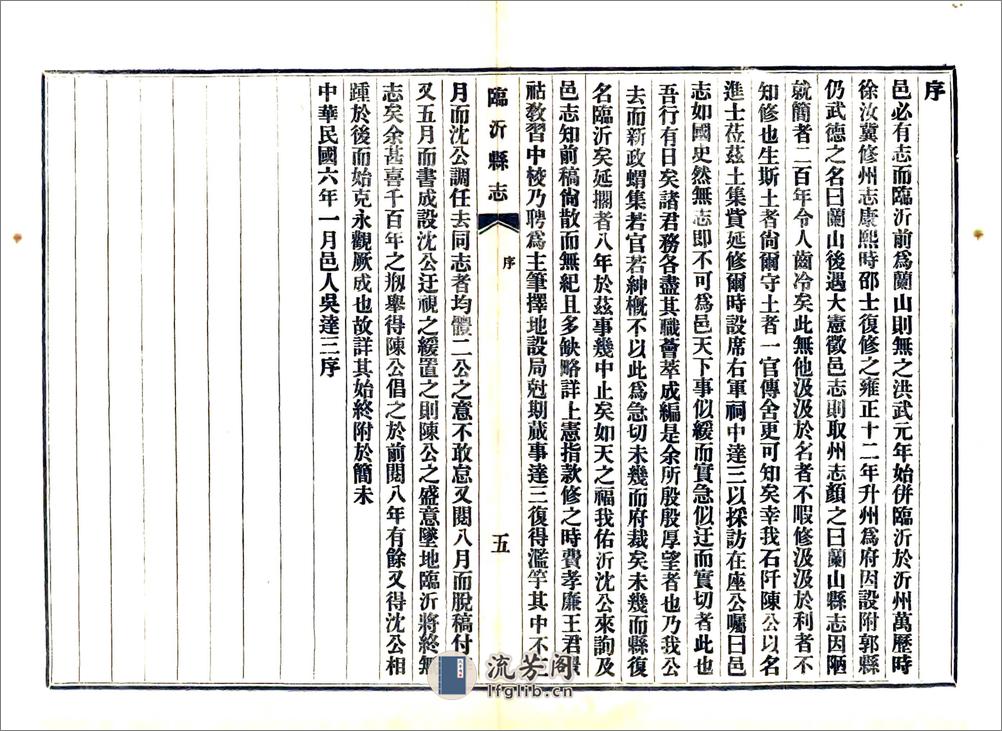 序
邑必有志而臨沂前爲蘭山則無之洪武元年始併臨沂於沂州萬歷時
徐汝冀修州志康熙時邵士復修之雍正十二年升州爲府因設附郭縣
仍武德之名曰蘭山後遇大憲徵邑志則取州志顏之曰蘭山縣志因陋
就簡者二百年令人齒冷矣此無他汲汲於名者不暇修汲汲於利者不
知修也生斯土者尙爾守土者一官傳舍更可知矣幸我石阡陳公以名
進士莅茲土集貲延修爾時設席右軍祠中達三以採訪在座公囑曰邑
志如國史然無志即不可爲邑天下事似緩而實急似迂而實切者此也
吾行有日矣諸君務各盡其職薈萃成編是余所殷殷厚望者也乃我公
去而新政蝟集若官若紳槪不以此爲急切未幾而府裁矣未幾而縣復
名臨沂矣延擱者八年於茲事幾中止矣如天之福我佑沂沈公來詢及
邑志知前稿尙散而無紀且多缺略詳上憲指款修之時費孝廉王君景
祜敎習中梭乃聘爲主筆擇地設局尅期蕆事達三復得濫竽其中不
臨沂縣志
序
五
月而沈公調任去同志者均體二公之意不敢怠又閱八月而脫稿付
又五月而書成設沈公迂視之緩置之則陳公之盛意墜地臨沂將終無
志矣余甚喜千百年之刱舉得陳公倡之於前閱八年有餘又得沈公相
踵於後而始克永觀厥成也故詳其始終附於簡末
中華民國六年一月邑人吳達三序
流芳閣
lfglib.cn